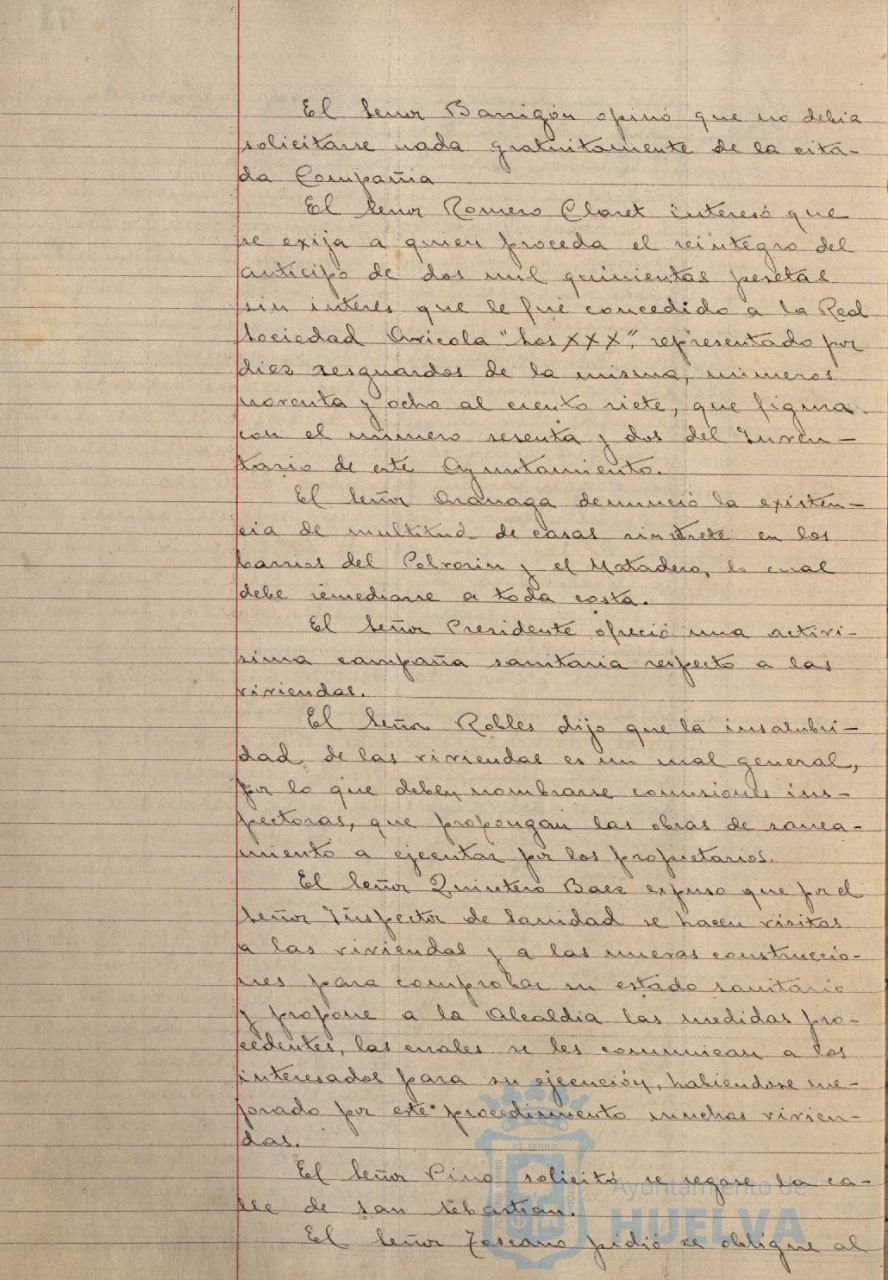 El Señor Barrigón opinó que no debia
solicitarse nada gratuitamente de la cita-
da Compañia
El Señor Romero Claret interesó que
se exija a quien proceda el reintegro del
anticipo de dos mil quinientas pesetas
sin interes que le fué concedido a la Red
Sociedad Avicola "Los XXX", representado por
diez resguardos de la misma, numeros
noventa y ocho al ciento siete, que figura
con el numero sesenta y dos del Inven-
tario de este Ayuntamiento.
El Señor Aranaga denunció la existen-
cia de multitud de casas sin retrete en los
barrios del Polvorin y el Matadero, lo cual
debe remediarse a toda costa.
El Señor Presidente ofreció una activi-
sima campaña sanitaria respecto a las
viviendas.
El Señor Robles dijo que la insalubri-
dad de las viviendas es un mal general,
por lo que deben nombrarse comisiones ins-
pectoras, que propongan las obras de sanea-
miento a ejecutar por los propietarios.
El Señor Quintero Baez expuso que por el
Señor Inspector de Sanidad se hacen visitas
a las viviendas y a las nuevas construccio-
nes para comprobar su estado sanitario
y propone a la Alcaldia las medidas pro-
cedentes, las cuales se les comunican a los
interesados para su ejecución, habiendose me-
jorado por este procedimiento muchas vivien-
das.
El Señor Pino solicitó se regase la ca-
lle de San Sebastian.
El Señor Toscano pidió se obligue al
Ayuntamiento de
HUELVA